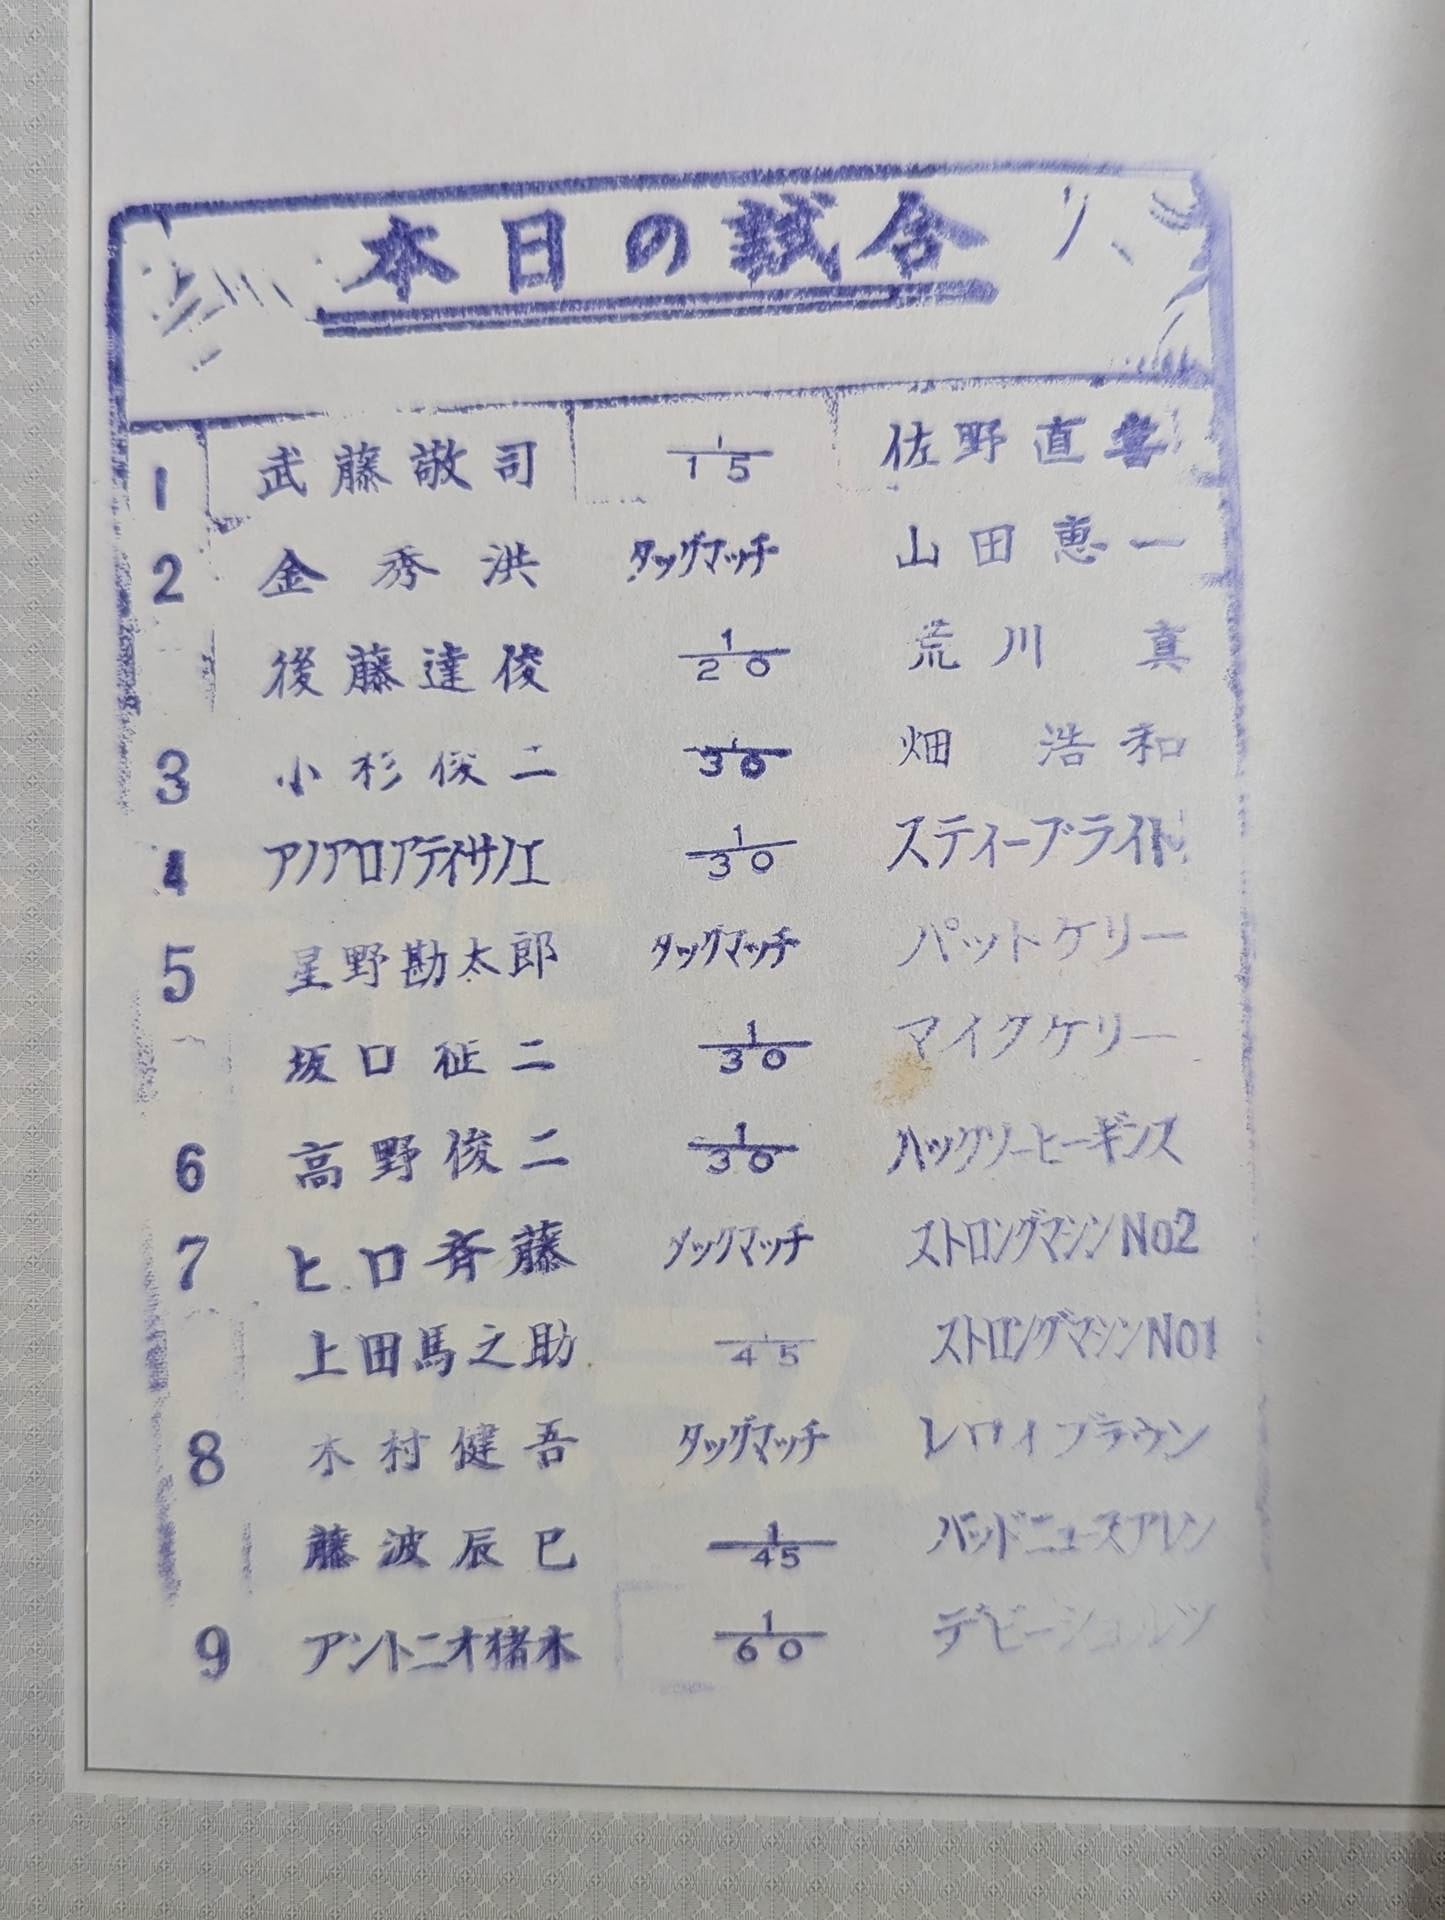 本日の試合
1 武藤敬司 1/15 佐野直喜
2 金秀洪 タッグマッチ 山田恵一
後藤達俊 1/20 荒川真
3 小杉俊二 1/30 畑浩和
4 アノアロアティサノエ 1/30 スティーブライト
5 星野勘太郎 タッグマッチ パットケリー
坂口征二 1/30 マイクケリー
6 高野俊二 1/30 ハックソーヒーギンス
7 ヒロ斉藤 タッグマッチ ストロングマシンNO2
上田馬之助 1/45 ストロングマシンNO1
8 木村健吾 タッグマッチ レロイブラウン
藤波辰巳 1/45 バッドニュースアレン
9 アントニオ猪木 1/60 デビーシュルツ